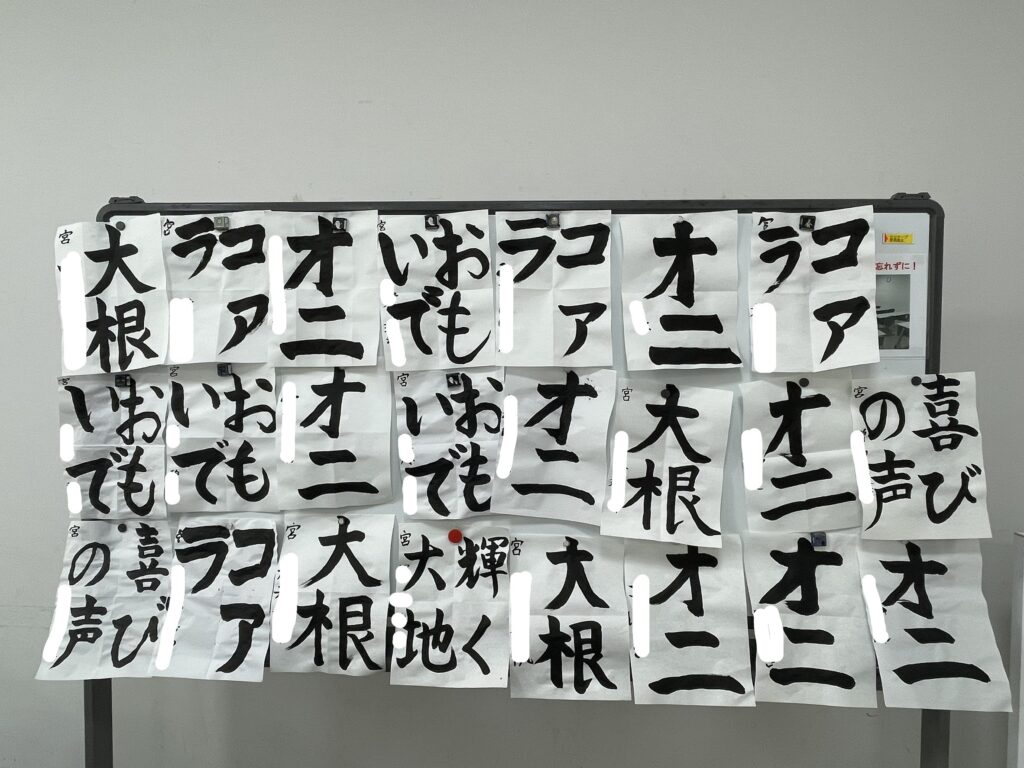 大根
宮
コア
ラ
宮
オニ
おも
いで
宮
コア
ラ
オニ
コア
ラ
宮
忘れずに！
おも
いで
宮
おも
いで
宮
オニ
おも
いで
宮
オニ
大根
宮
オニ
喜び
の声
宮
喜び
の声
宮
コア
ラ
宮
大根
宮
輝く
大地
宮
大根
宮
オニ
オニ
オニ